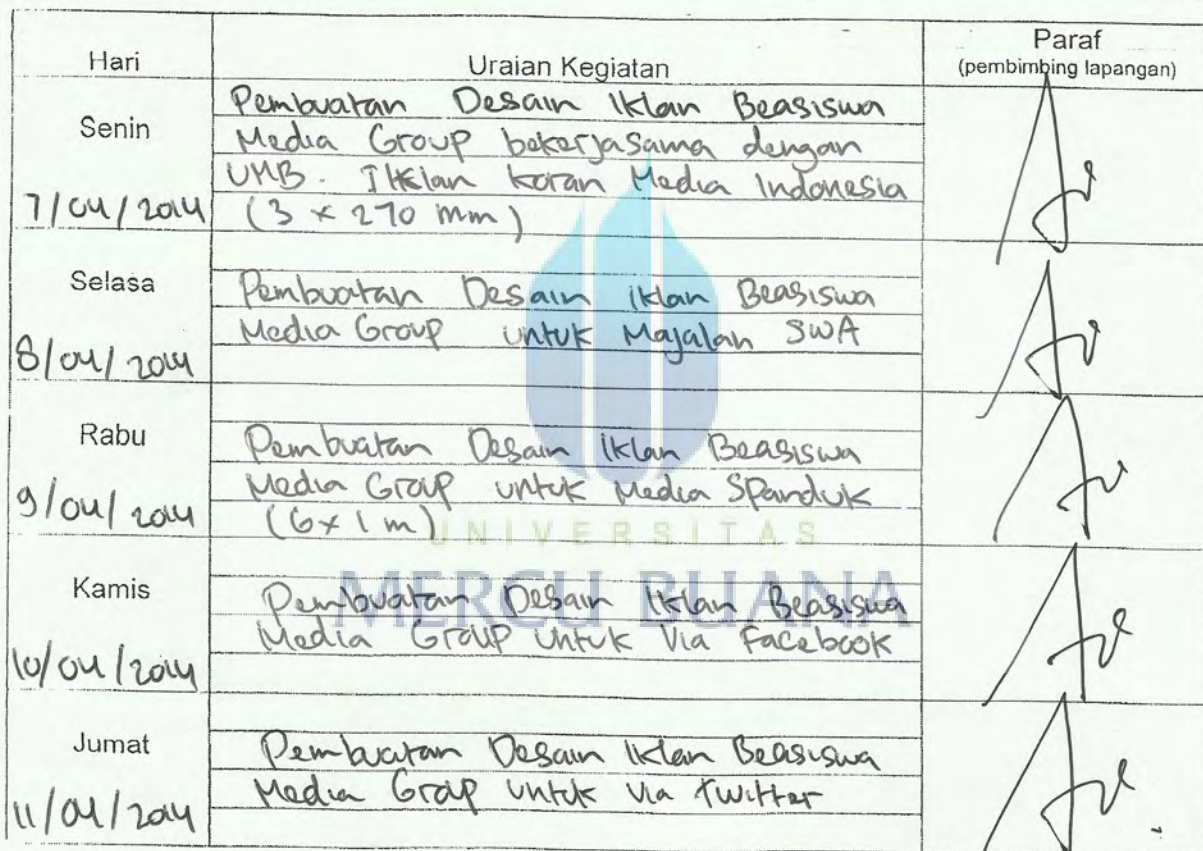 Hari
Uraian Kegiatan
Paraf
(pembimbing lapangan)
Senin
7/04/2014
Pembuatan Desain Iklan Beasiswa
Media Group bekerjasama dengan
UMB. Iklan koran Media Indonesia
(3 x 270 mm)
Selasa
8/04/2014
Pembuatan Desain Iklan Beasiswa
Media Group untuk Majalah SWA
Rabu
9/04/2014
Pembuatan Desain Iklan Beasiswa
Media Group untuk Media Spanduk
(6 x 1 m)
UNIVERSITAS
MERCU BUANA
Kamis
10/04/2014
Pembuatan Desain Iklan Beasiswa
Media Group untuk Via Facebook
Jumat
11/04/2014
Pembuatan Desain Iklan Beasiswa
Media Group untuk Via Twitter